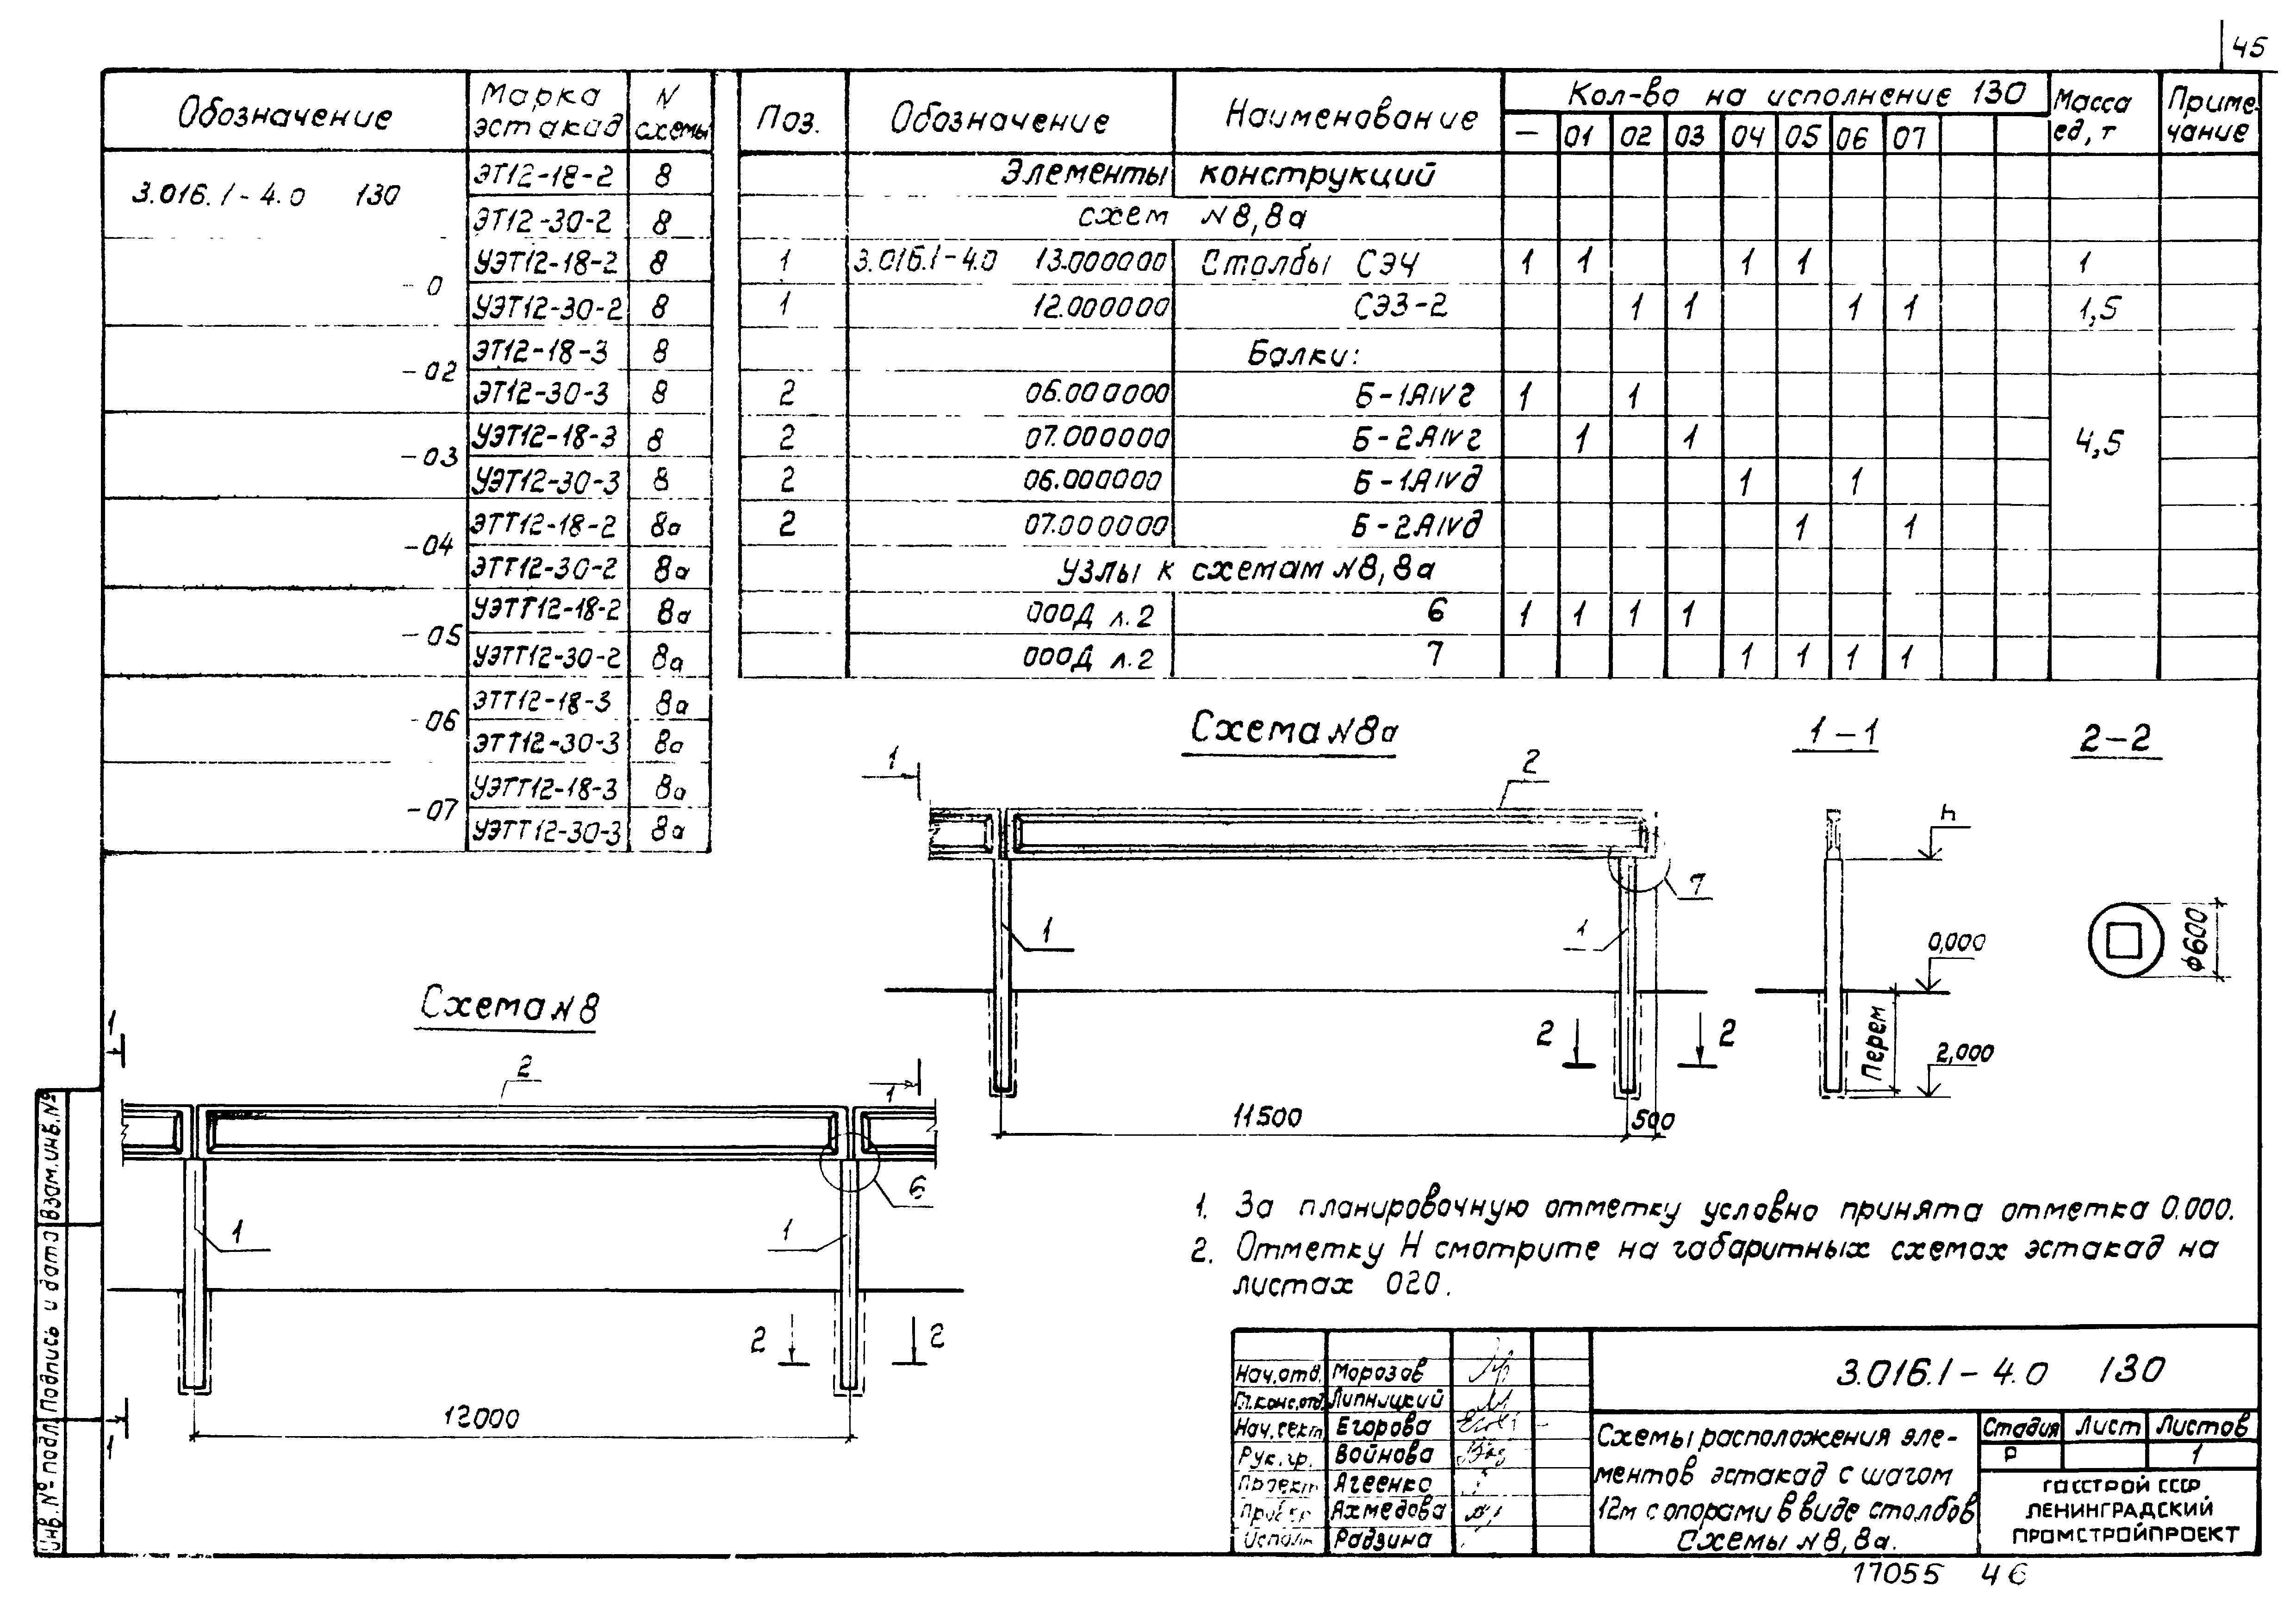 45
Обозначение | Марка эстакад | N схемы
3.016.1-4.0 130 | ЭТ12-18-2 | 8
ЭТ12-30-2 | 8
-0 | УЭТ12-18-2 | 8
УЭТ12-30-2 | 8
-02 | ЭТ12-18-3 | 8
ЭТ12-30-3 | 8
-03 | УЭТ12-18-3 | 8
УЭТ12-30-3 | 8
-04 | ЭТТ12-18-2 | 8а
ЭТТ12-30-2 | 8а
-05 | УЭТТ12-18-2 | 8а
УЭТТ12-30-2 | 8а
-06 | ЭТТ12-18-3 | 8а
ЭТТ12-30-3 | 8а
-07 | УЭТТ12-18-3 | 8а
УЭТТ12-30-3 | 8а
Поз. | Обозначение | Наименование | Кол-во на исполнение 130 | Масса ед, т | Приме-чание
— | 01 | 02 | 03 | 04 | 05 | 06 | 07
Элементы конструкций
схем N8,8а
1 | 3.016.1-4.0 13.000000 | Столбы СЭ4 | 1 | 1 | 1 | 1 | 1
1 | 12.000000 | СЭ3-2 | 1 | 1 | 1 | 1 | 1,5
Балки:
2 | 06.000000 | Б-1АIVг | 1 | 1
2 | 07.000000 | Б-2АIVг | 1 | 1 | 4,5
2 | 06.000000 | Б-1АIVд | 1 | 1
2 | 07.000000 | Б-2АIVд | 1 | 1
Узлы к схемам N8,8а
000Д л.2 | 6 | 1 | 1 | 1 | 1
000Д л.2 | 7 | 1 | 1 | 1 | 1
Схема N8а
1
2
7
1
1
2 2
11500
500
1
1-1
Н
0,000
Перем
2,000
2-2
ϕ600
Схема N8
1
2
6
1
1
2 2
12000
1
1. За планировочную отметку условно принята отметка 0.000.
2. Отметку Н смотрите на габаритных схемах эстакад на
листах 020.
Нач.отд. Морозов
Гл.конс.отд. Липницкий
Нач.сект. Егорова
Рук.гр. Войнова
Проект. Агеенко
Провер. Ахмедова
Исполн. Радзина
3.016.1-4.0 130
Схемы расположения эле-
ментов эстакад с шагом
12м с опорами в виде столбов
Схемы N8,8а.
Стадия Лист Листов
Р 1
ГОССТРОЙ СССР
ЛЕНИНГРАДСКИЙ
ПРОМСТРОЙПРОЕКТ
17055 46
Инв.№ подл. Подпись и дата Взам.инв.№